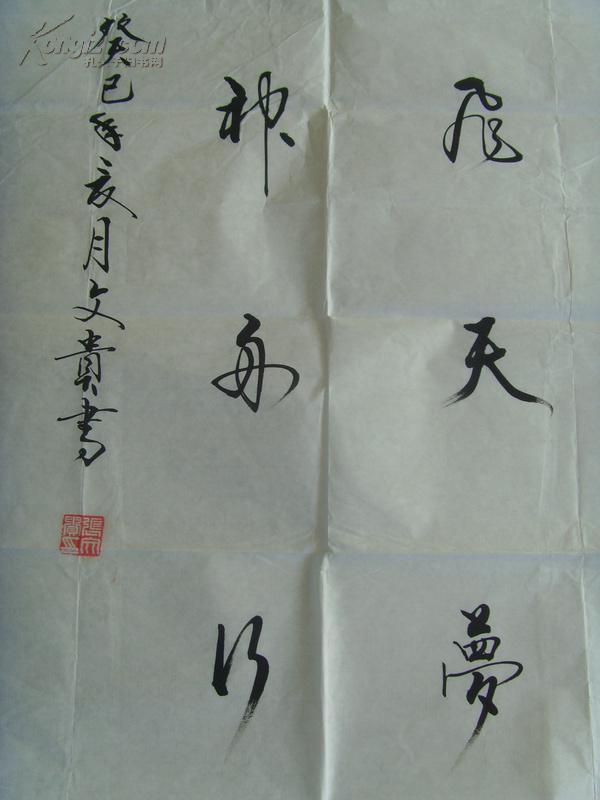 飛天夢
神舟行
癸巳年亥月文貴書
張文貴印
Kongfz.com
孔夫子旧书网